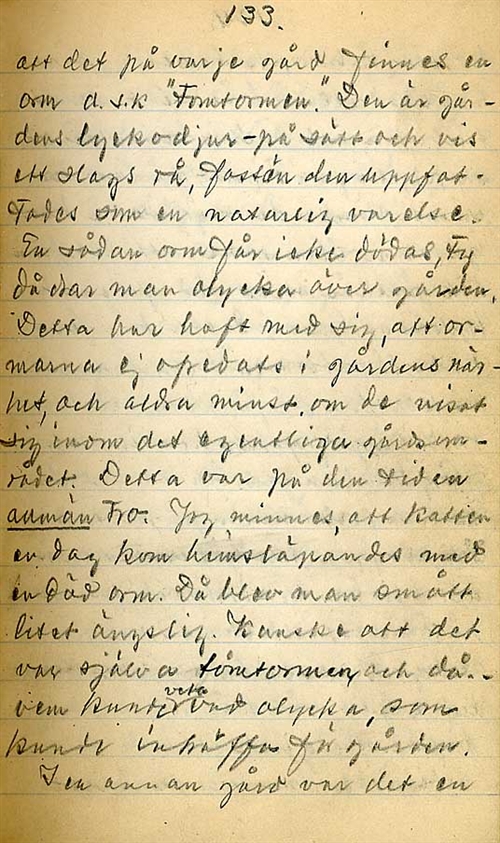 133.
att det på varje gård finnes en
orm d.s.k "Tomtormen." Den är går-
dens lyckodjur - på sätt och vis
ett slags rå, fastän den uppfat-
tades som en naturlig varelse.
En sådan orm får icke dödas, ty
då drar man olycka över gården.
Detta har haft med sig, att or-
marna ej ofredats i gårdens när-
het, och aldra minst, om de visat
sig inom det egentliga gårdsom-
rådet. Detta var på den tiden
allmän tro. Jag minnes, att katten
en dag kom hemsläpandes med
en död orm. Då blev man smått
litet ängslig. Kanske att det
var själva tomtormen, och då..
vem kunde veta vad olycka, som
kunde inträffa för gården.
I en annan gård var det en